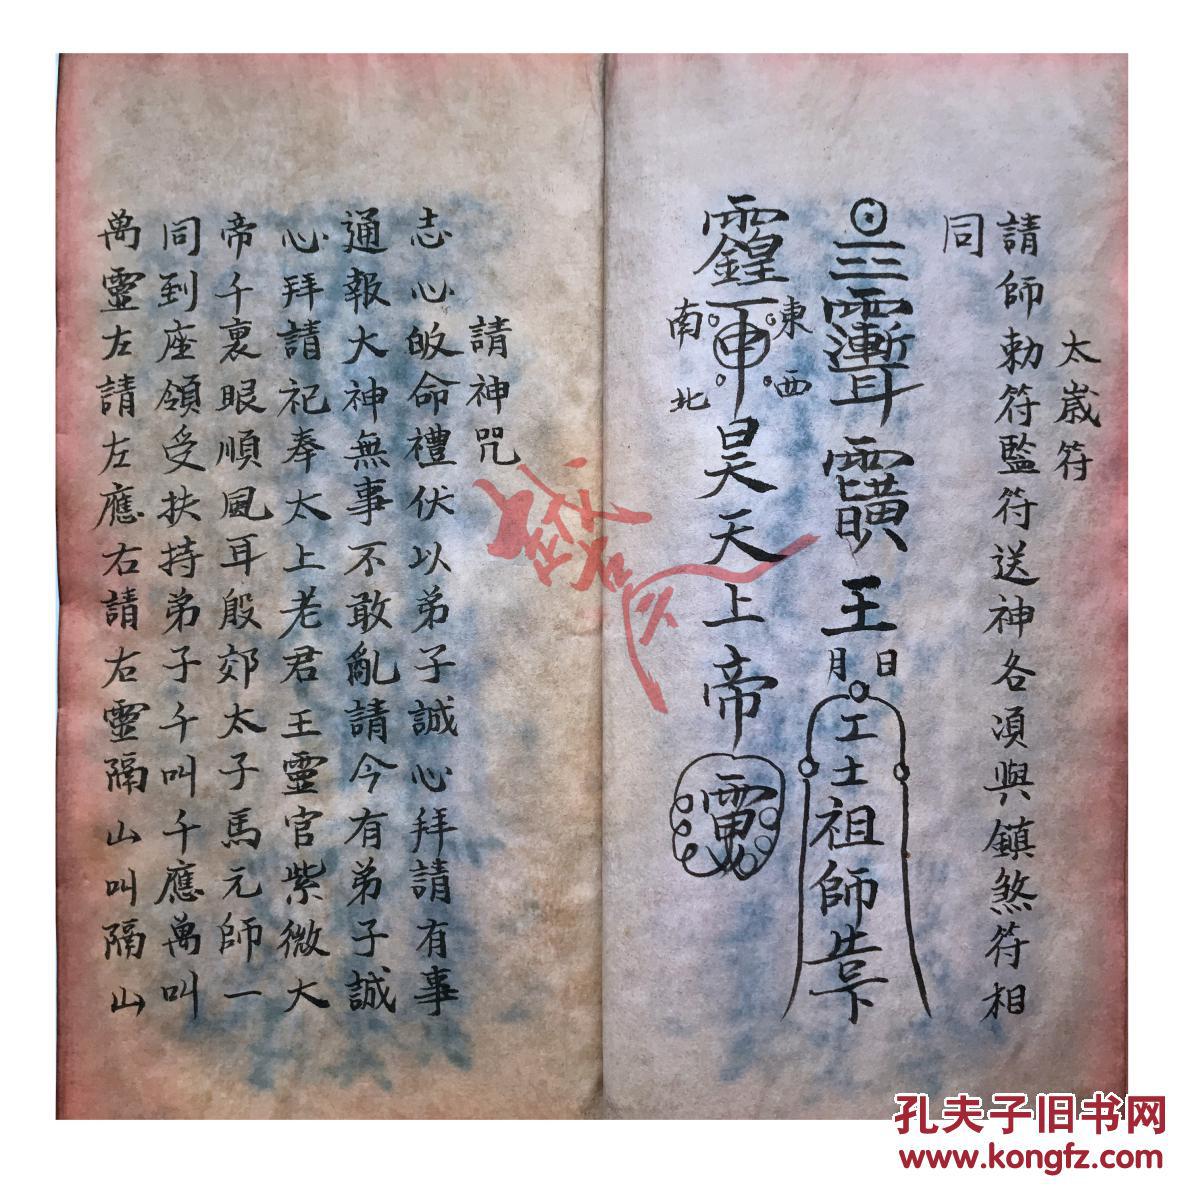 太歲符
請師勅符監符送神各項與鎮煞符相
同
王
日 月
工
士
祖師
東 西
南 北
申
昊天上帝
請神咒
志心皈命禮伏以弟子誠心拜請有事
通報大神無事不敢亂請今有弟子誠
心拜請祀奉太上老君王靈官紫微大
帝千裏眼順風耳殷郊太子馬元師一
同到座領受扶持弟子千叫千應萬叫
萬靈左請左應右請右靈隔山叫隔山
孔夫子旧书网
www.kongfz.com